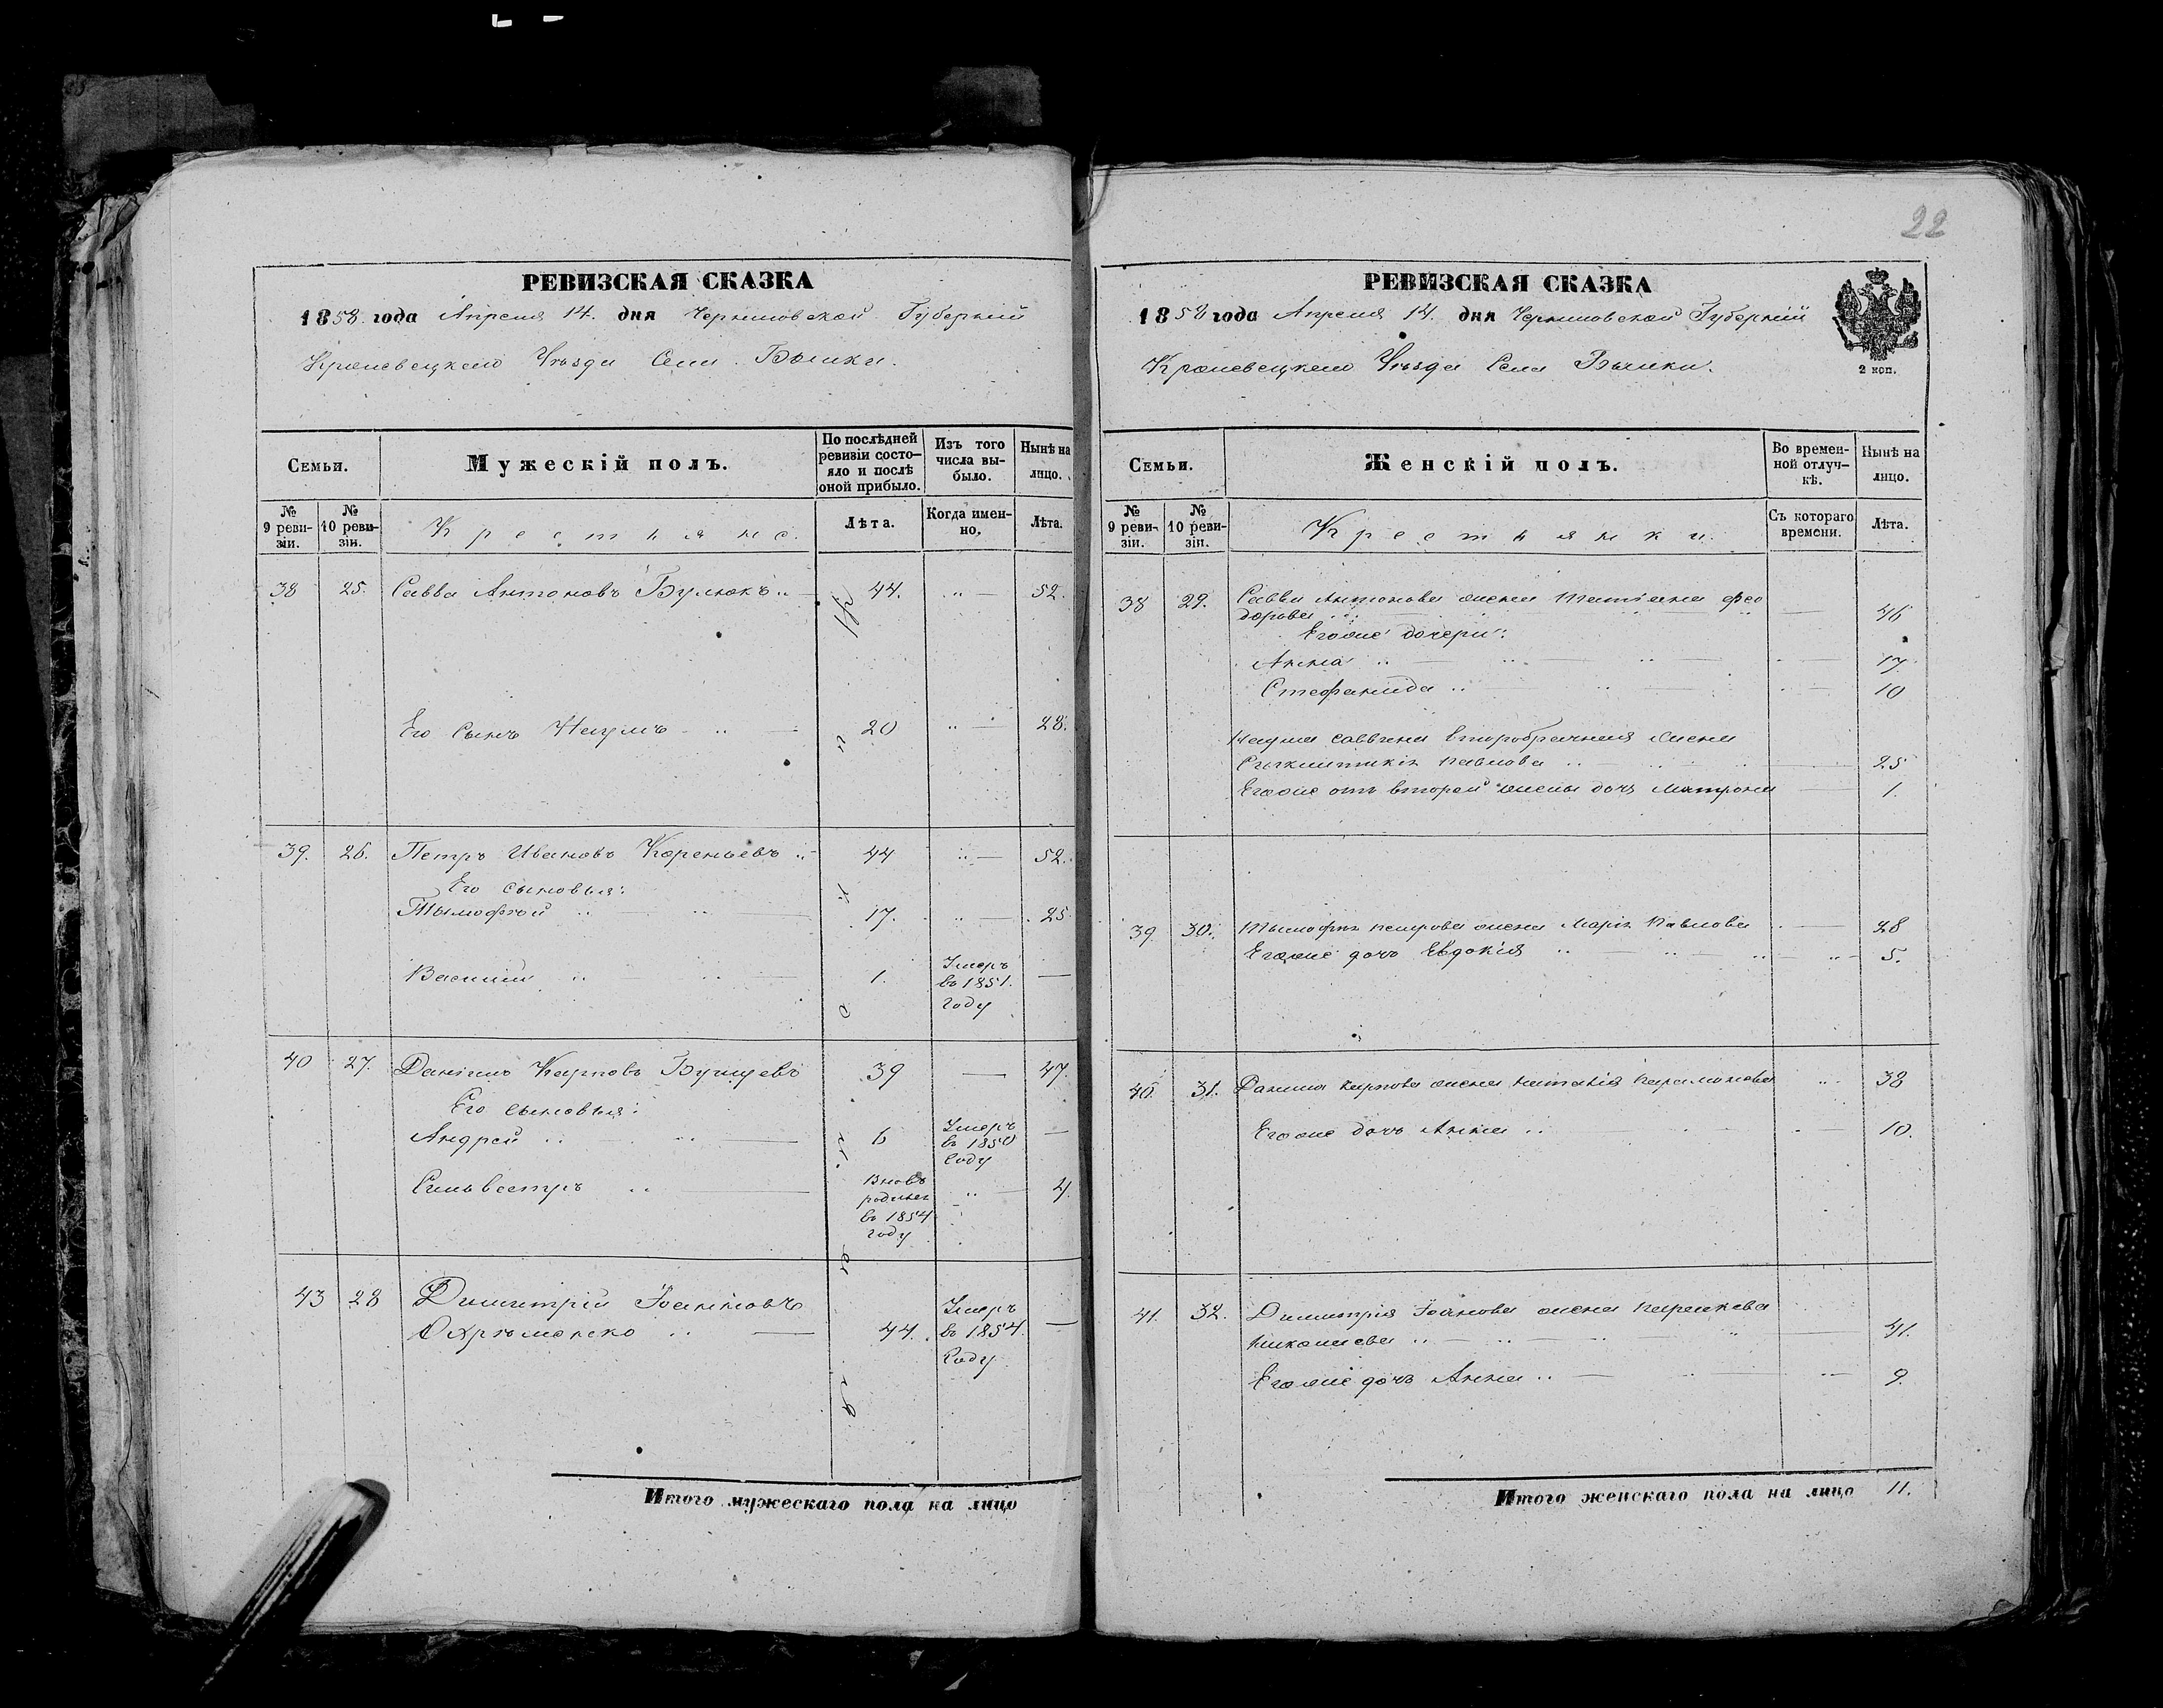 22
РЕВИЗСКАЯ СКАЗКА
1858 года Апреля 14. дня Черниговской Губерніи
Кролевецкаго Уѣзда Села Бычики.
Семьи.
Мужескій полъ.
По послѣдней ревизіи состо-
яло и послѣ
оной прибыло.
Изъ того
числа вы-
было.
Нынѣ на
лицо.
№
9 реви-
зіи.
№
10 реви-
зіи.
Крестьяне.
Лѣта.
Когда имен-
но.
Лѣта.
38 25. Савва Антоновъ 44. 52.
Его Сынъ Наумъ 20 28.
39. 26. Петръ Ивановъ Кореньевъ 44 52.
Его сыновья:
Тымофѣй 17. 25
Василій 1. Умеръ
въ 1851.
году
40 27. Даніилъ Карповъ 39 47.
Его сыновья:
Андрей 6 Умеръ
въ 1850
году
Сильвестръ Вновь
рожденъ
въ 1854
году
4.
43 28 Димитрій Іоанновъ
Охрѣменко 44. Умеръ
въ 1854.
Году
Итого мужескаго пола на лицо
РЕВИЗСКАЯ СКАЗКА
1858 года Апреля 14. дня Черниговской Губерніи
Кролевецкаго Уѣзда Села Бычики.
2 коп.
Семьи.
Женскій полъ.
Во времен-
ной отлуч-
кѣ.
Нынѣ на
лицо.
№
9 реви-
зіи.
№
10 реви-
зіи.
Крестьянки.
Съ котораго
времени.
Лѣта.
38 29. Саввы Антонова жена Татіана Фео
дорова 46
Егоже дочери:
Анна 17
Стефанида 10
Наума Саввина второбрачная жена
Павлова 25
Егоже отъ второй жены дочь Матрона 1.
39. 30. Тымофѣя Петрова жена Марія Павлова 28
Егоже дочь Евдокія 5.
40. 31. Данила Карпова жена Наталія Парамонова 38
Егоже дочь Анна 10.
41. 32. Димитрія Іоанова жена Параскева
Николаева 41.
Егоже дочь Анна 9.
Итого женскаго пола на лицо 11.